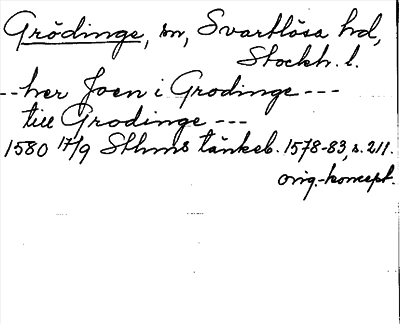 Grödinge, sn, Svartlösa hd,
Stockh. l.
-- her Joen i Grodinge ---
till Grodinge ---
1580 17/9 Sthms tänkeb. 1578-83, s. 211.
orig.-koncept.